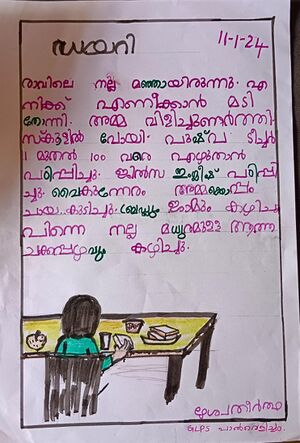 ഡയറി
11-1-24
രാവിലെ നല്ല മഞ്ഞായിരുന്നു. എ
നിക്ക് എണീക്കാൻ മടി
തോന്നി. അമ്മ വിളിച്ചുണർത്തി.
സ്കൂളിൽ പോയി. പുഷ്പ ടീച്ചർ
1 മുതൽ 100 വരെ എഴുതാൻ
പഠിപ്പിച്ചു. ജിൽസ ഇംഗ്ലീഷ് പഠിപ്പി
ച്ചു. വൈകുന്നേരം അമ്മക്കൊപ്പം
ചായ കുടിച്ചു. ബ്രഡ്ഡും ജാമും കഴിച്ചു
പിന്നെ നല്ല മധുരമുള്ള ആത്ത
ചക്കപ്പഴവും കഴിച്ചു.
GLPS